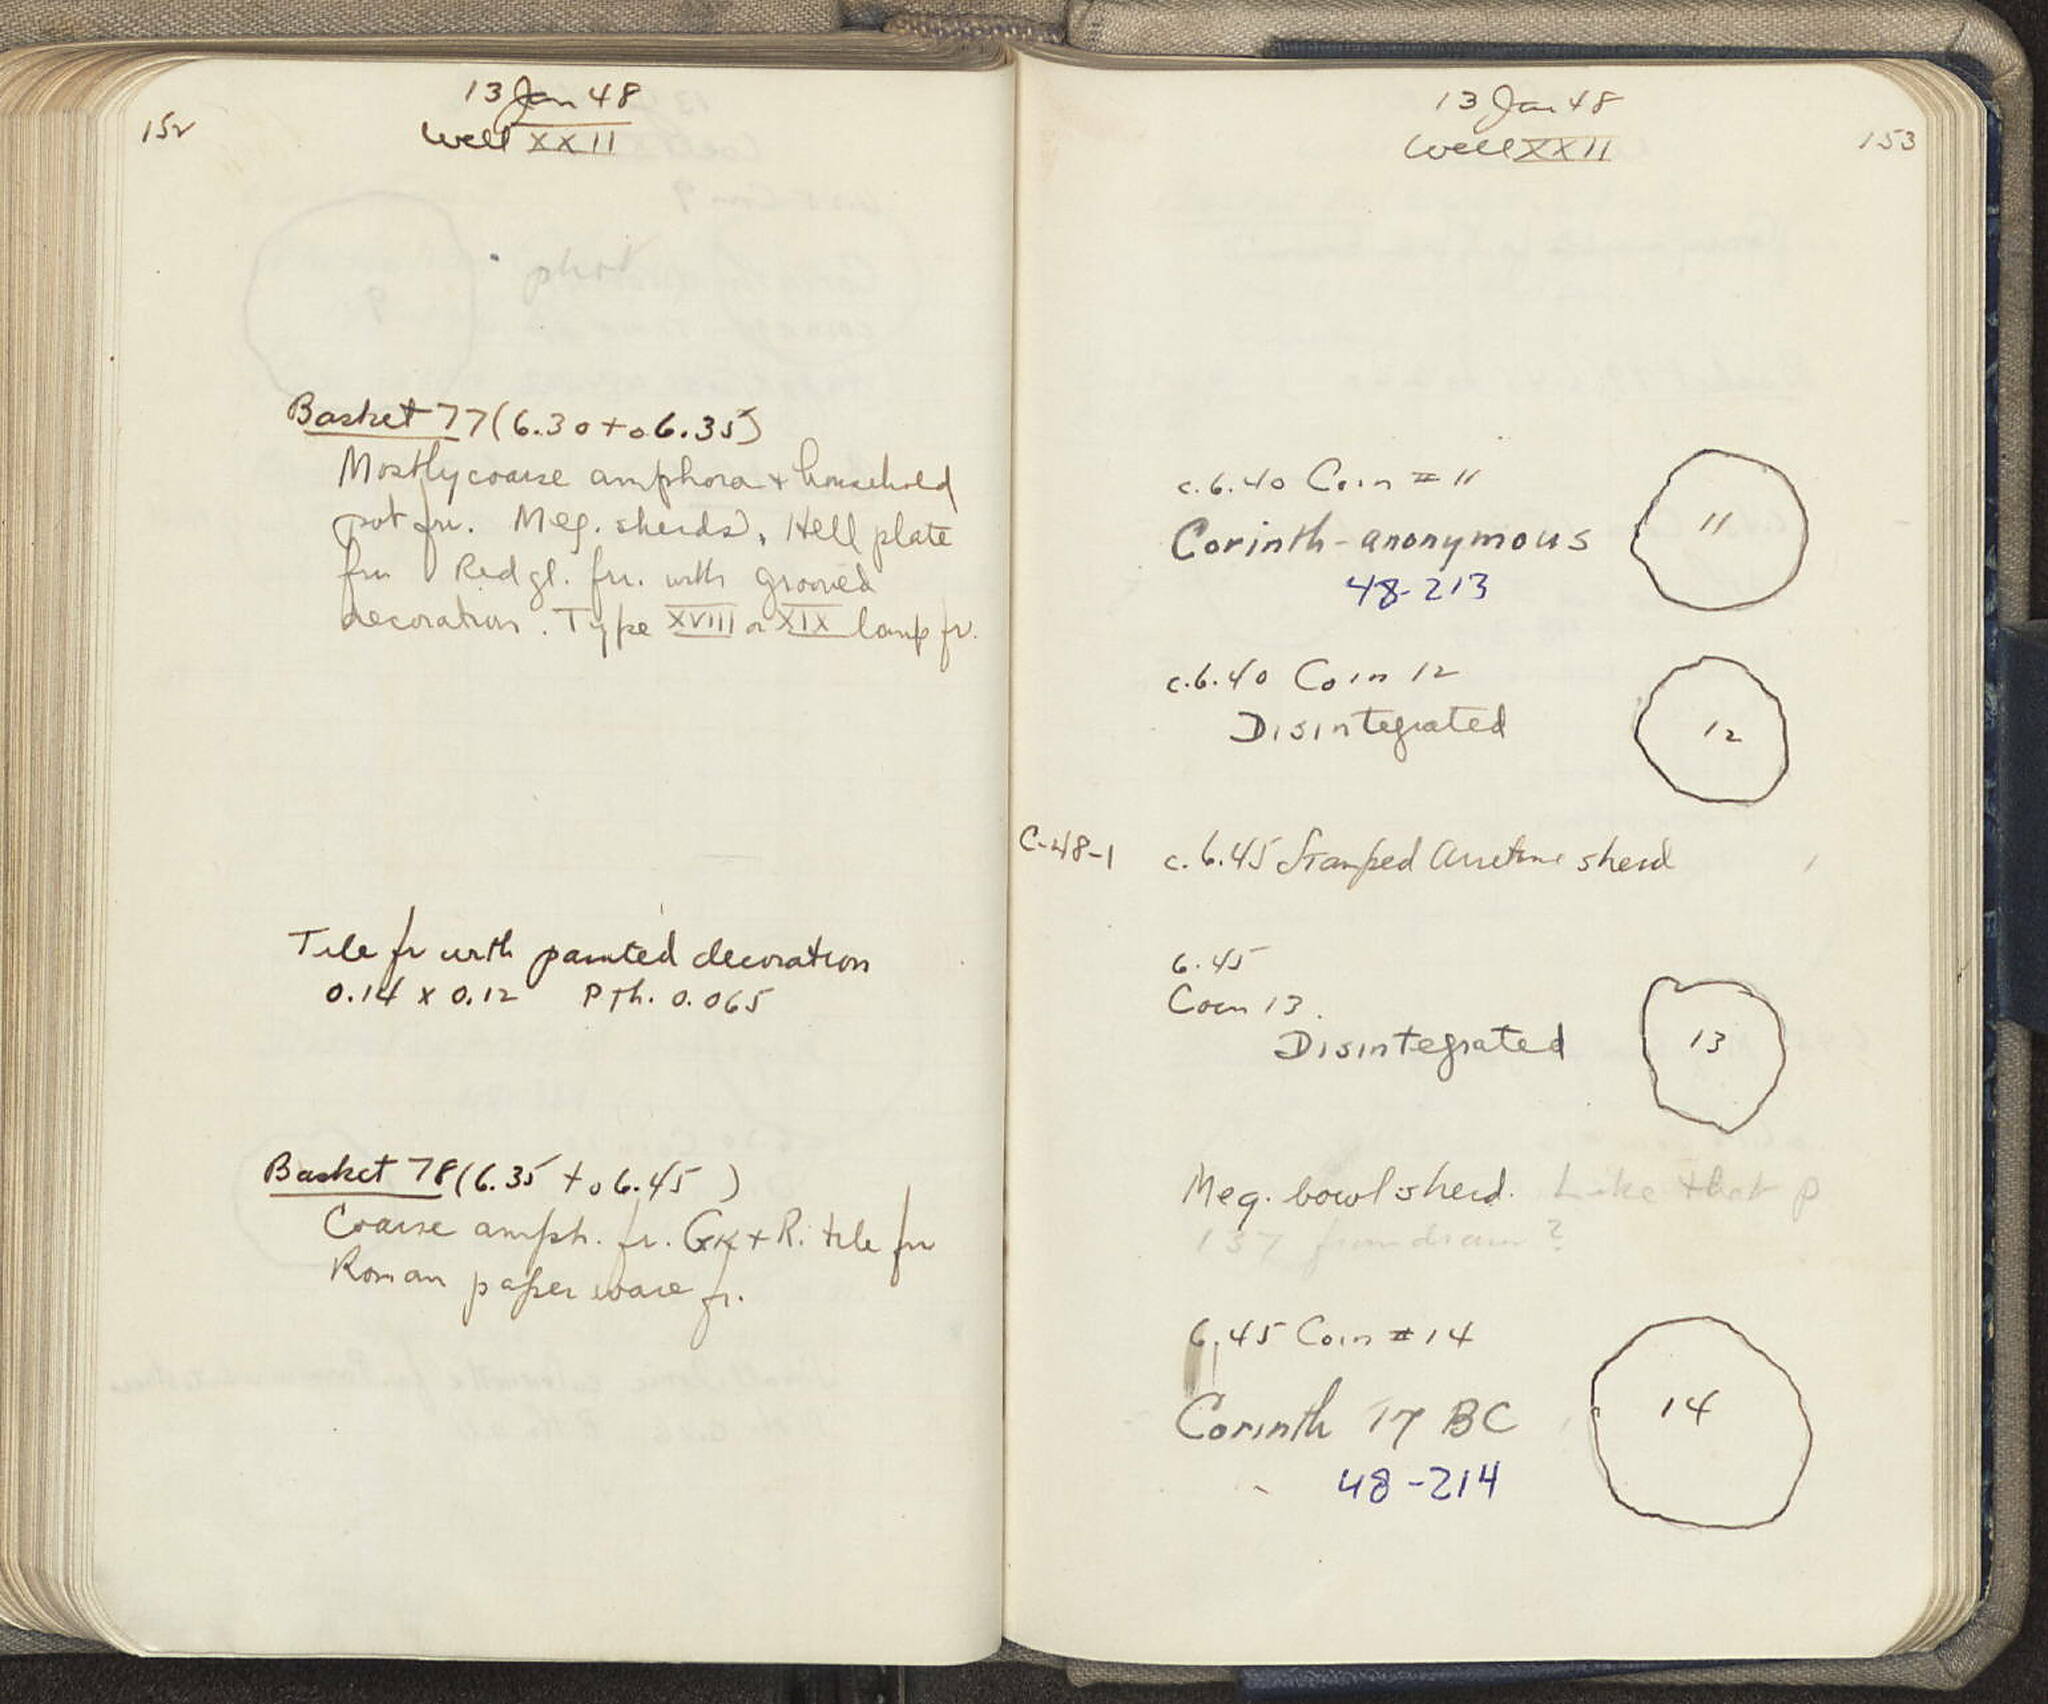 152
13 Jan 48
Well XXII
phot
Basket 77 (6.30 to 6.35)
Mostly coarse amphora + household
pot fr. Meg. sherds, Hell plate
frr Red gl. frr. with grooved
decoration. Type XVIII or XIX lamp fr.
Tile fr with painted decoration
0.14 x 0.12 PTh. 0.065
Basket 78 (6.35 to 6.45)
Coarse amph. fr. Gk + R. tile frr
Roman paper ware fr.
13 Jan 48
Well XXII
153
c. 6.40 Coin # 11
11
Corinth - anonymous
48-213
c. 6.40 Coin 12
Disintegrated
12
C-48-1 c. 6.45 Stamped Arretine sherd
6.45
Coin 13.
13
Disintegrated
Meg. bowl sherd. Like that p
137 from dram?
6.45 Coin # 14
14
Corinth 17 BC
48-214